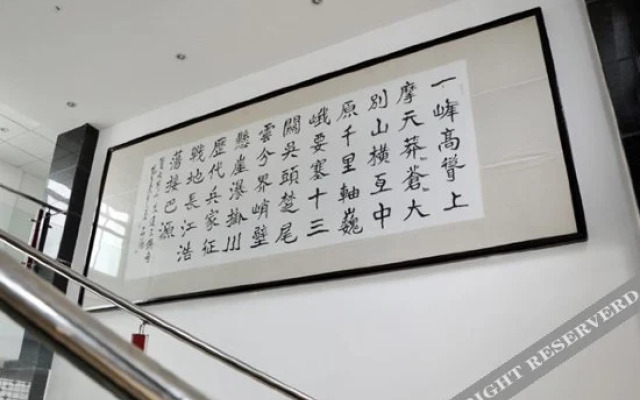 一峰高聳上
摩天莽蒼大
別山橫亙中
原千里軸巍
峨要塞十三
關吳頭楚尾
雲分界峭壁
懸崖瀑掛川
歷代兵家征
戰地長江浩
蕩接巴源
RIGHT RESERVERD